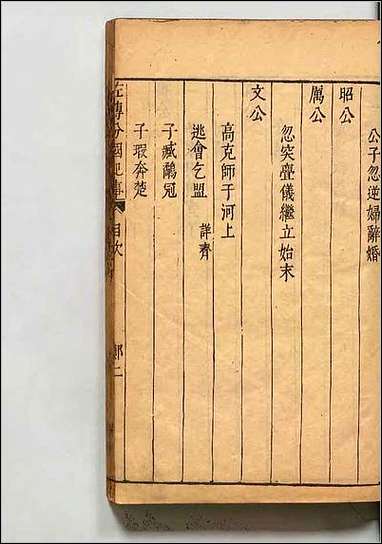 公子忽逆婦辭婚
昭公
厲公
忽突亹儀繼立始末
文公
高克師于河上
逃會乞盟 詳齊
子臧鷸冠
子瑕奔楚
左傳分國紀事 目次 鄭二